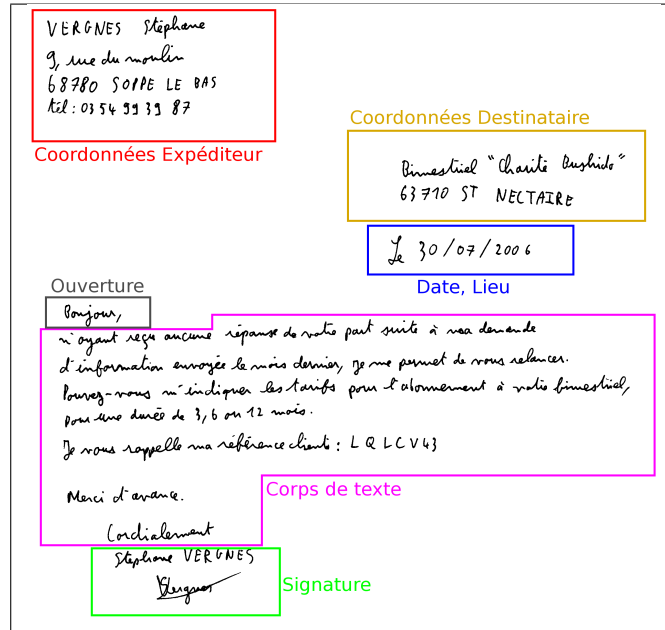 VERGNES Stéphane
9, rue du moulin
68780 SOPPE LE BAS
tél : 03 54 99 39 87
Coordonnées Expéditeur
Coordonnées Destinataire
Bimestriel "Charité Bushido"
63710 ST NECTAIRE
Le 30/07/2006
Date, Lieu
Ouverture
Bonjour,
n'ayant reçu aucune réponse de votre part suite à ma demande
d'information envoyée le mois dernier, je me permet de vous relancer.
Pouvez-vous m'indiquer les tarifs pour l'abonnement à votre bimestriel,
pour une durée de 3, 6 ou 12 mois.
Je vous rappelle ma référence cliente : LQLCV43
Merci d'avance.
Corps de texte
Cordialement
Stéphane VERGNES
Vergnes
Signature